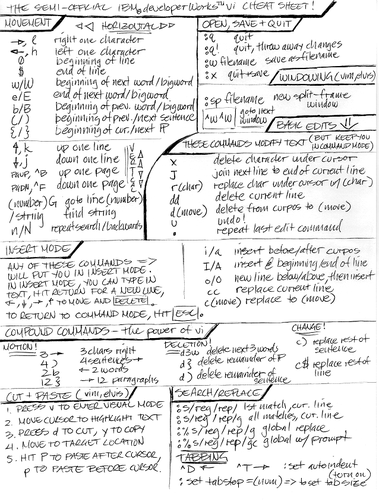 THE SEMI-OFFICIAL IBM developerWorks™ vi CHEAT SHEET!
MOVEMENT
HORIZONTAL
→, l right one character
←, h left one character
0 beginning of line
$ end of line
w/W beginning of next word/bigword
e/E end of next word/bigword
b/B beginning of prev. word/bigword
(/) beginning of prev./next sentence
{/} beginning of cur./next ¶
↑, k up one line
↓, j down one line
PAUP, ^B up one page
PADN, ^F down one page
(number)G goto line (number)
/string find string
n/N repeat search/backwards
VERTICAL
OPEN, SAVE + QUIT
:q quit
:q! quit, throw away changes
:w filename save as filename
:x quit + save
WINDOWING (vim, elvis)
:sp filename new split-frame window
^W^W goto next window
BASIC EDITS
THESE COMMANDS MODIFY TEXT (BUT KEEP YOU IN COMMAND MODE)
x delete character under cursor
J join next line to end of current line
r(char) replace char under cursor w/(char)
dd delete current line
d(move) delete from curpos to (move)
u undo!
. repeat last edit command
INSERT MODE
ANY OF THESE COMMANDS =>
WILL PUT YOU IN INSERT MODE.
IN INSERT MODE, YOU CAN TYPE IN
TEXT, HIT RETURN FOR A NEW LINE,
←, ↓, →, ↑ TO MOVE AND DELETE.
TO RETURN TO COMMAND MODE, HIT ESC.
i/a insert before/after curpos
I/A insert @ beginning/end of line
o/O new line below/above, then insert
cc replace current line
c(move) replace to (move)
COMPOUND COMMANDS - the power of vi
MOTION!
3→ 3 chars right
4) 4 sentences →
2b ← 2 words
12} → 12 paragraphs
DELETION!
d3w delete next 3 words
d} delete remainder of ¶
d) delete remainder of sentence
CHANGE!
c) replace rest of sentence
c$ replace rest of line
CUT + PASTE (vim, elvis)
1. PRESS v TO ENTER VISUAL MODE
2. MOVE CURSOR TO HIGHLIGHT TEXT
3. PRESS d TO CUT, y TO COPY
4. MOVE TO TARGET LOCATION
5. HIT P TO PASTE AFTER CURSOR,
p TO PASTE BEFORE CURSOR.
SEARCH/REPLACE
:s/reg/rep/ 1st match, cur. line
:s/reg/rep/g all matches, cur. line
:%s/reg/rep/g global replace
:%s/reg/rep/gc global w/prompt
TABBING
^D ← ^T → :set autoindent (turn on)
:set tabstop=(num) => set tab size